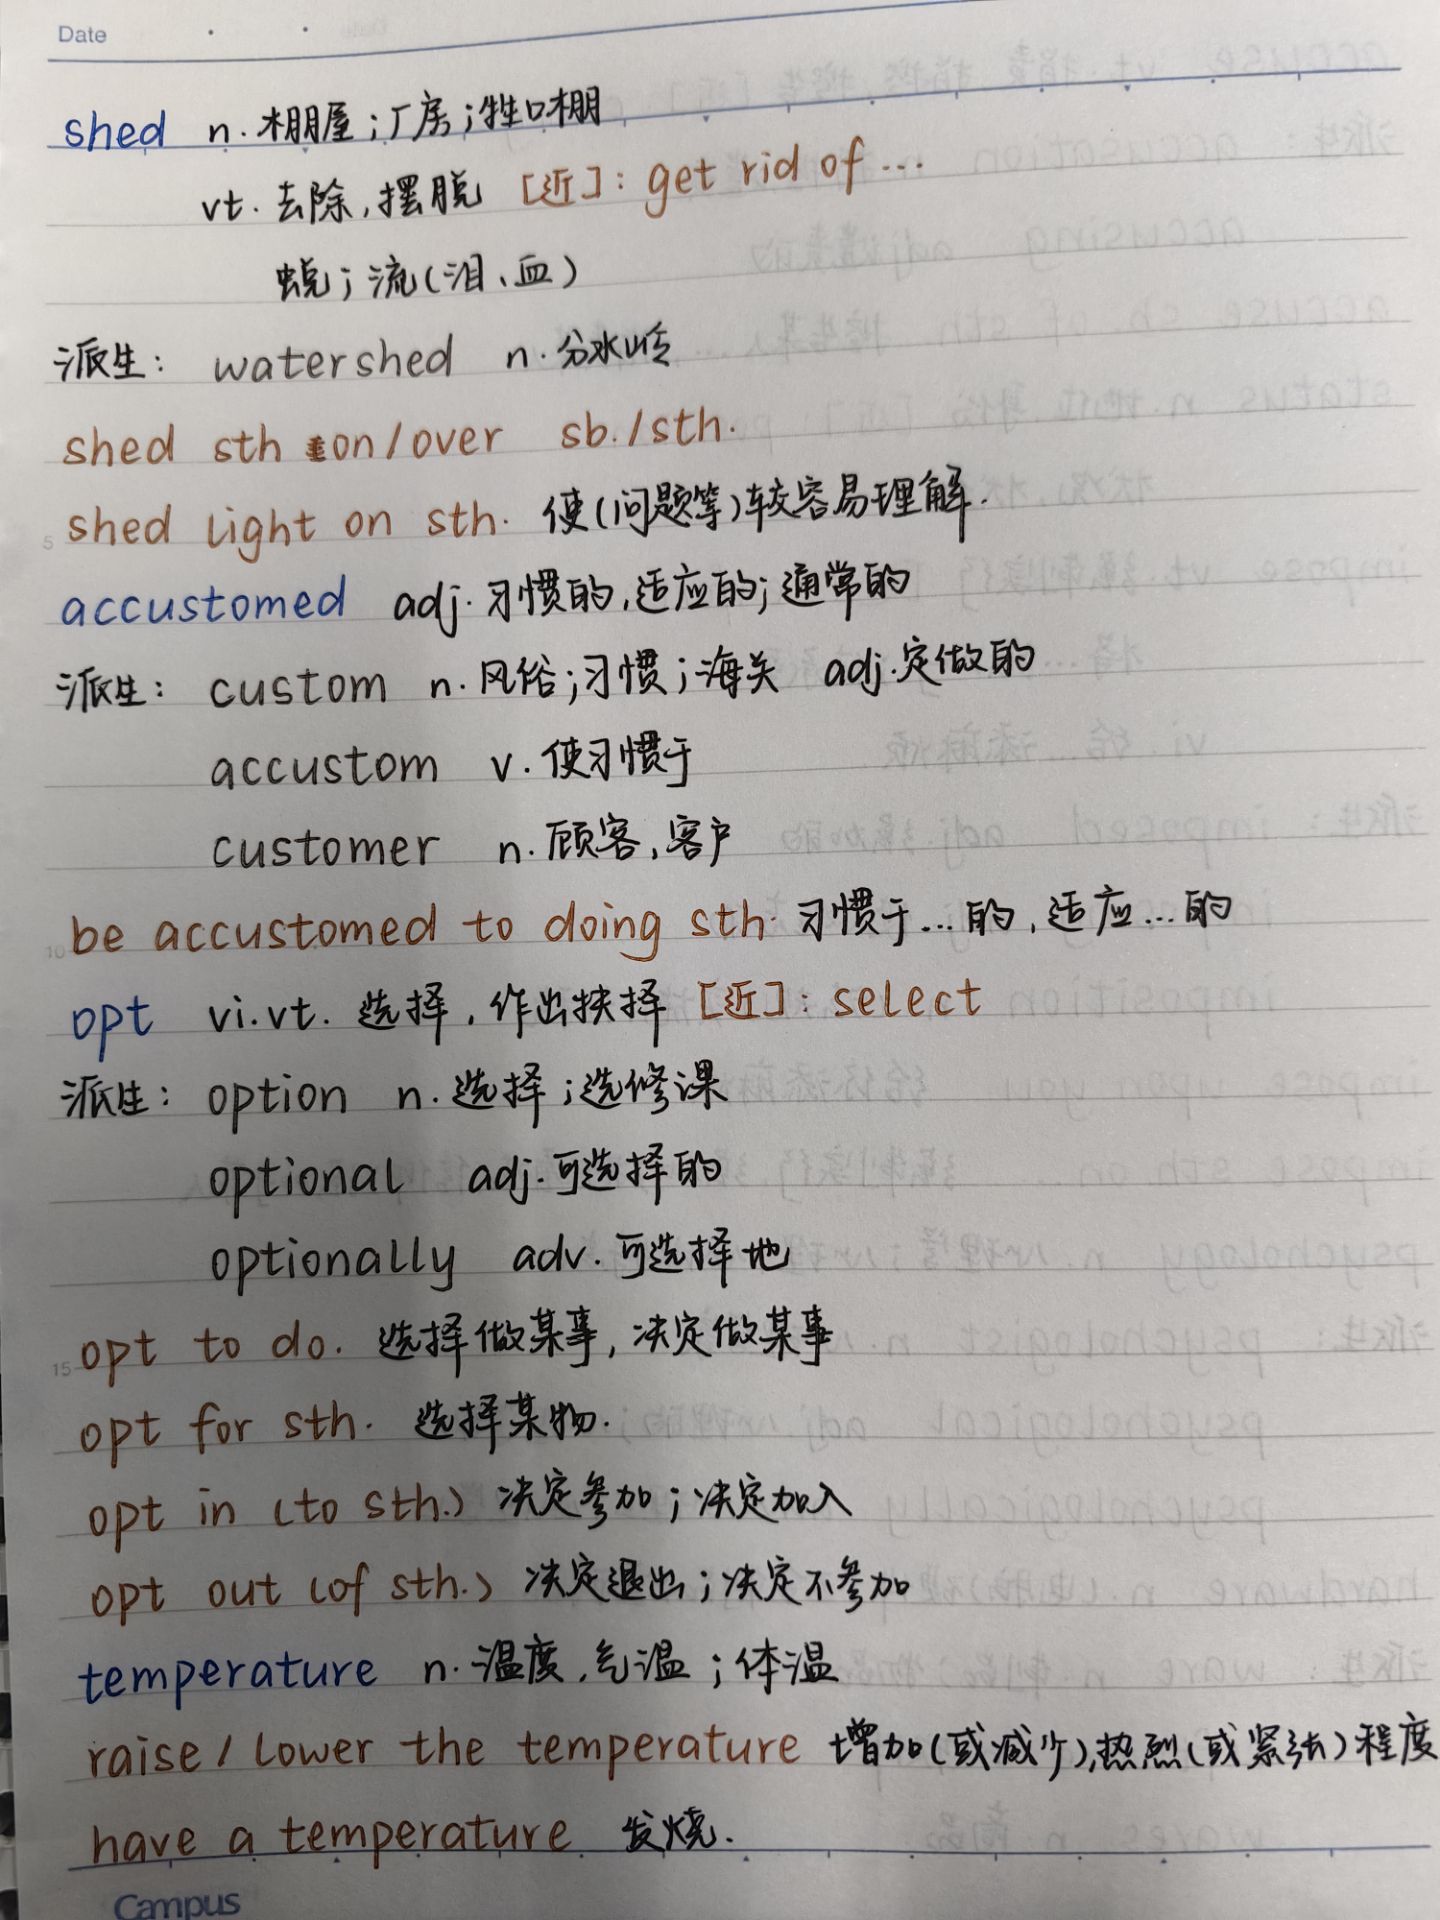 Date
shed n. 棚屋；厂房；牲口棚
vt. 去除，摆脱 [近]：get rid of ...
蜕；流(泪、血)
派生： watershed n. 分水岭
shed sth on/over sb./sth.
shed light on sth. 使(问题等)较容易理解.
5
accustomed adj. 习惯的，适应的；通常的
派生： custom n. 风俗；习惯；海关 adj. 定做的
accustom v. 使习惯于
customer n. 顾客，客户
be accustomed to doing sth. 习惯于...的，适应...的
10
opt vi. vt. 选择，作出抉择 [近]：select
派生： option n. 选择；选修课
optional adj. 可选择的
optionally adv. 可选择地
opt to do. 选择做某事，决定做某事
15
opt for sth. 选择某物.
opt in (to sth.) 决定参加；决定加入
opt out (of sth.) 决定退出；决定不参加
temperature n. 温度，气温；体温
raise / lower the temperature 增加(或减少)，热烈(或紧张)程度
have a temperature 发烧.
Campus